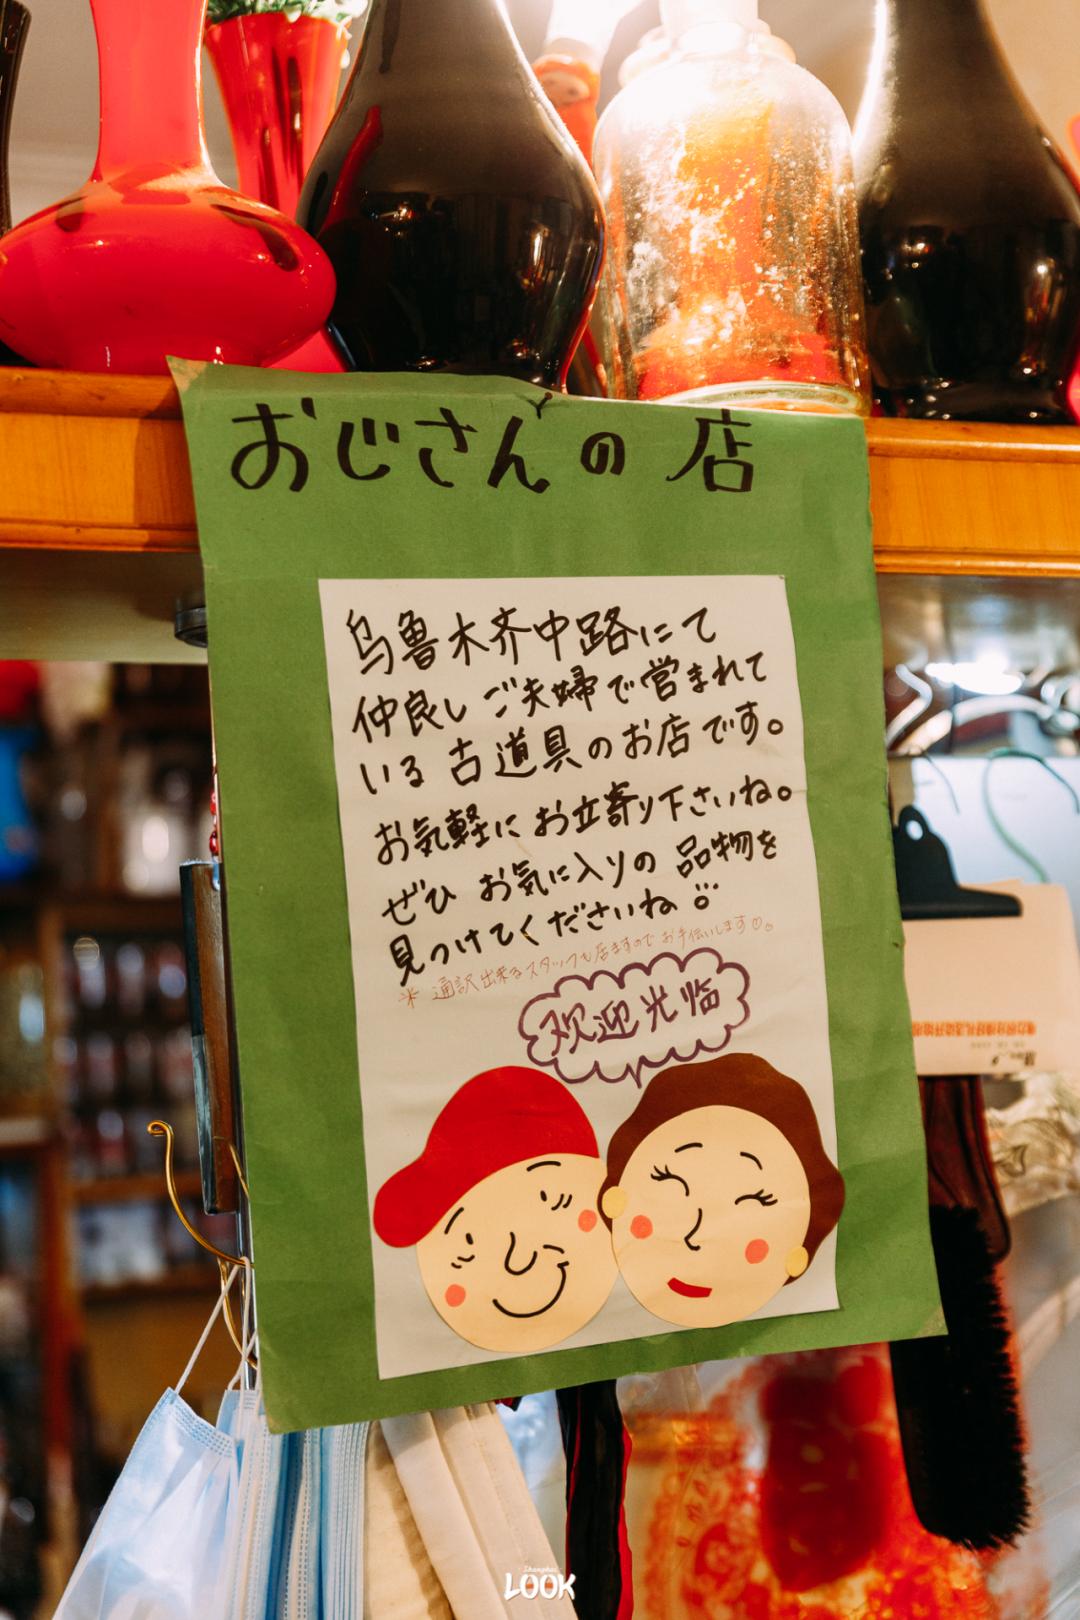 おじさんの店
乌鲁木齐中路にて
仲良しご夫婦で営まれて
いる古道具のお店です。
お気軽にお立寄り下さいね。
ぜひ お気に入りの品物を
見つけてくださいね
※ 通訳出来るスタッフも居ますのでお手伝いします
欢迎光临
Shanghai
LOOK